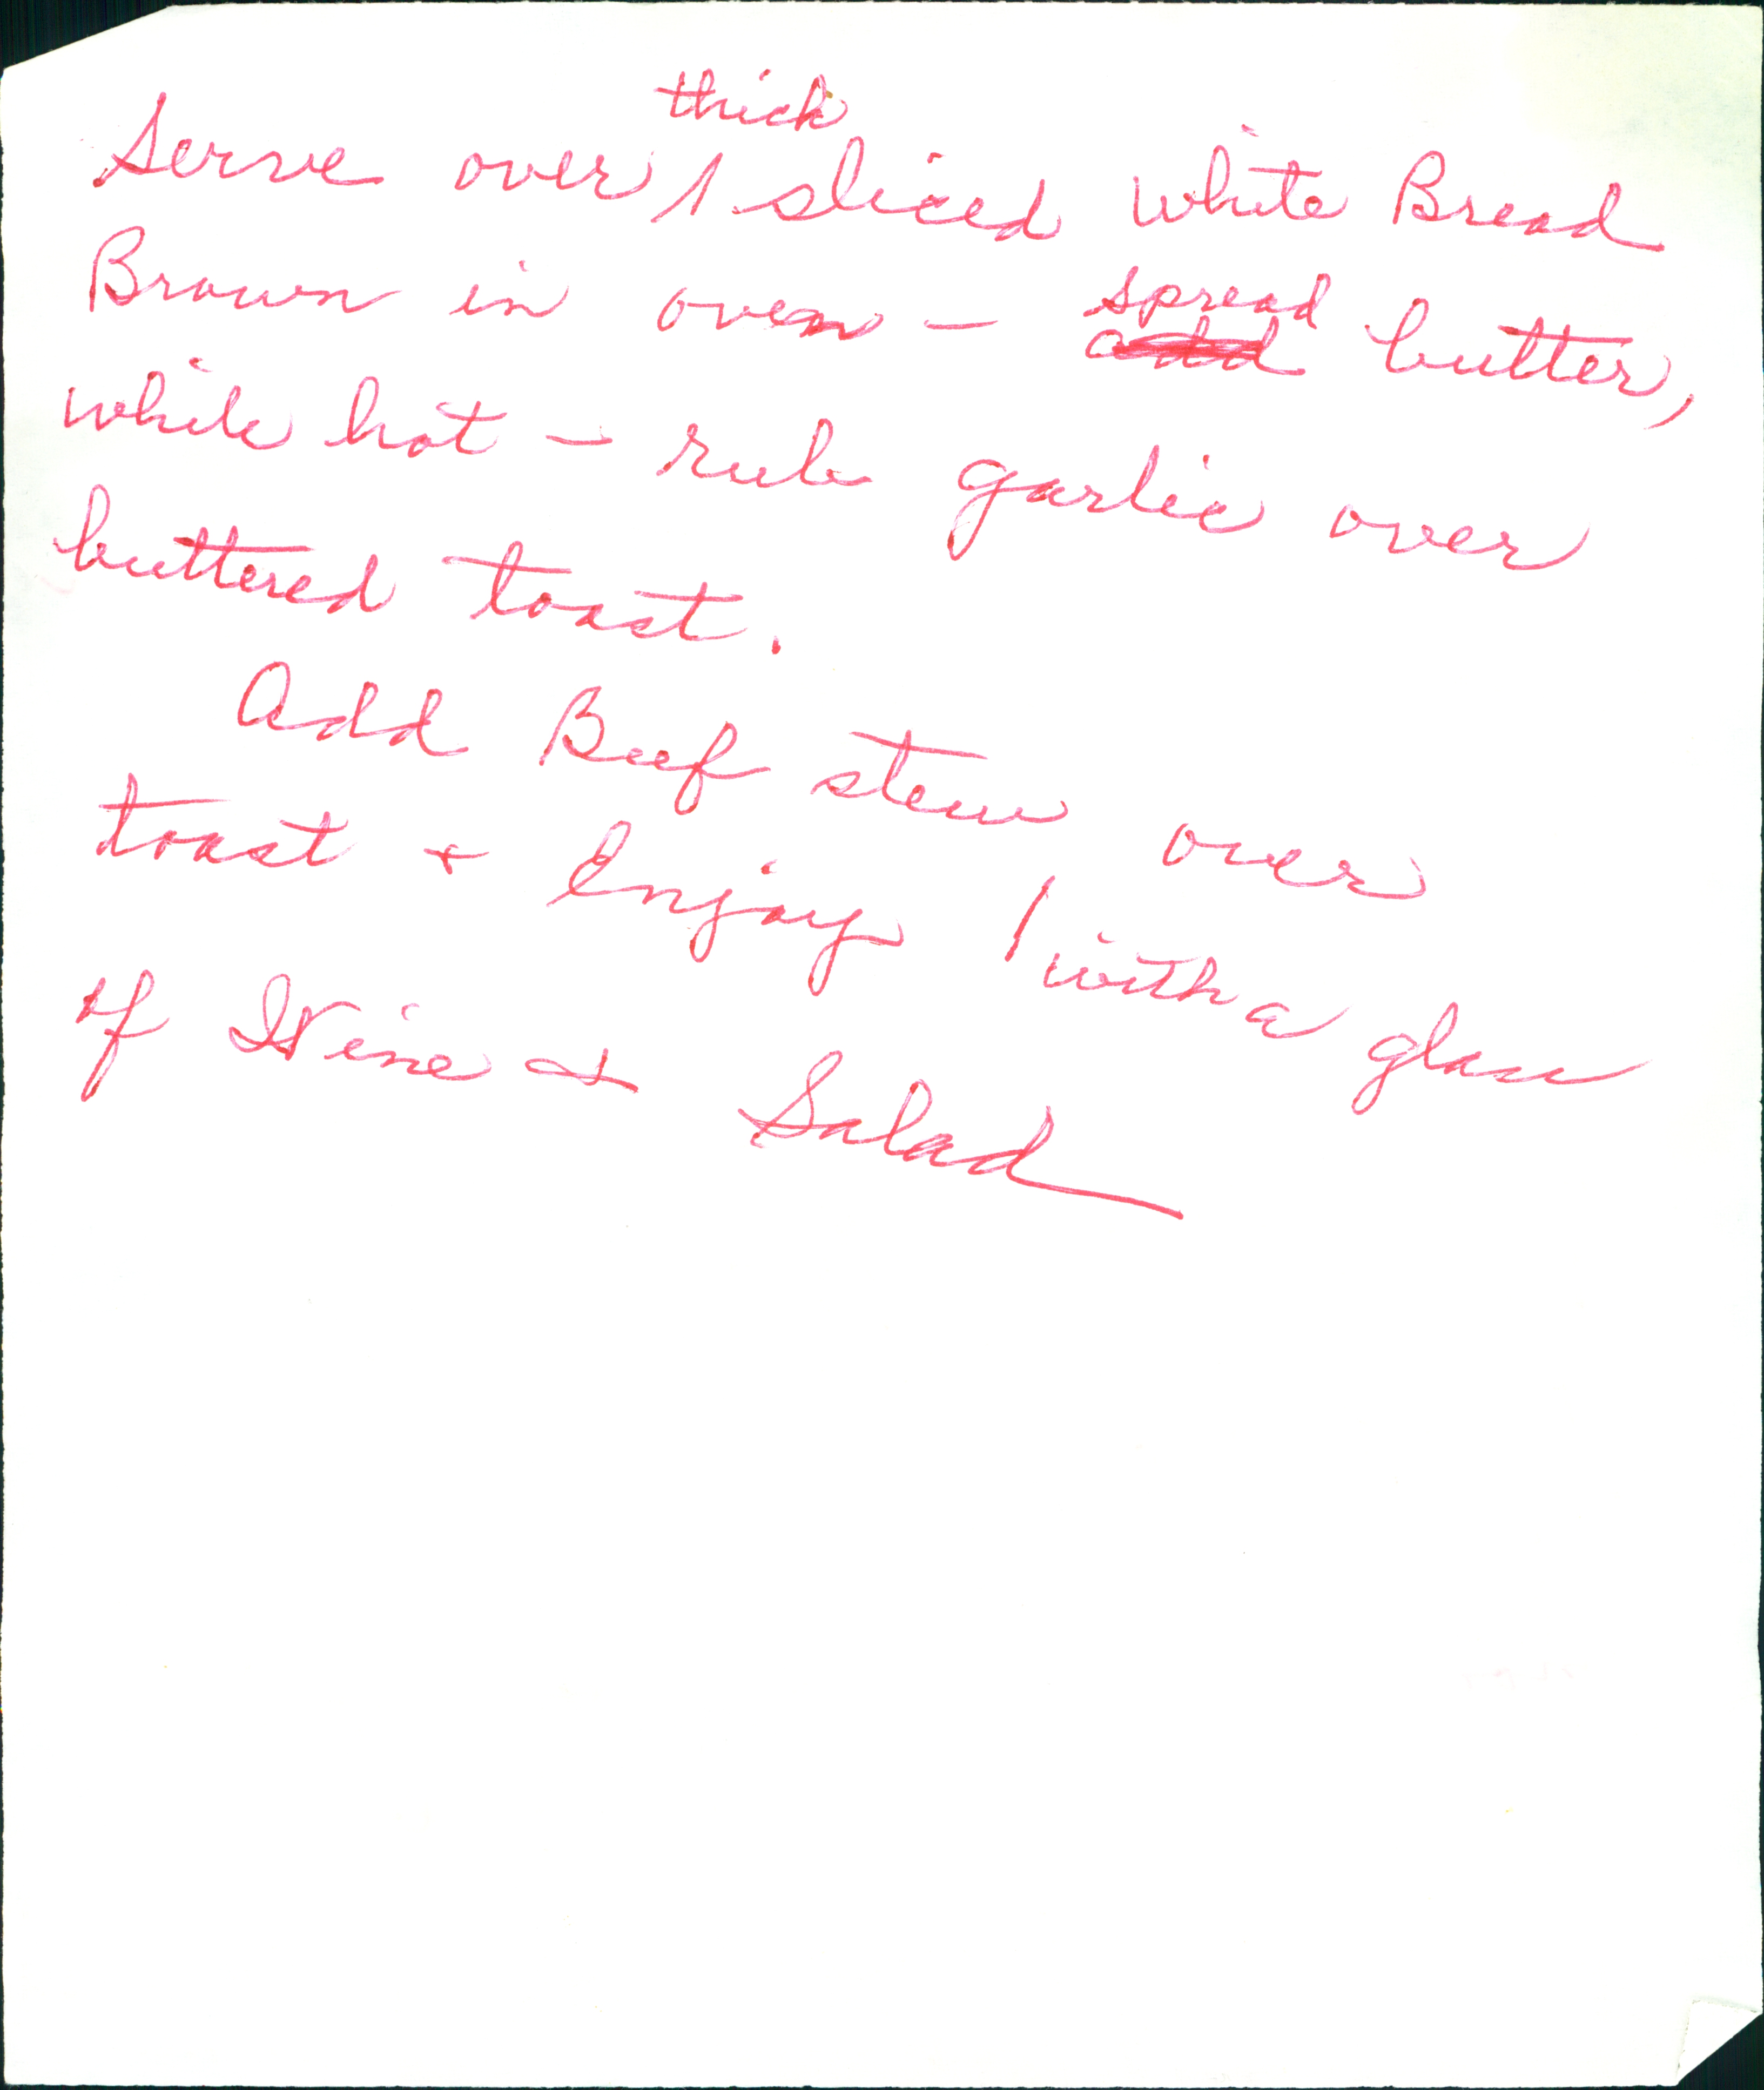 thick
Serve over ^ sliced White Bread
Brown in oven - spread butter,
while hot - rub garlic over
buttered toast.
Add Beef stew over
toast + Enjoy / with a glass
of Wine + Salad